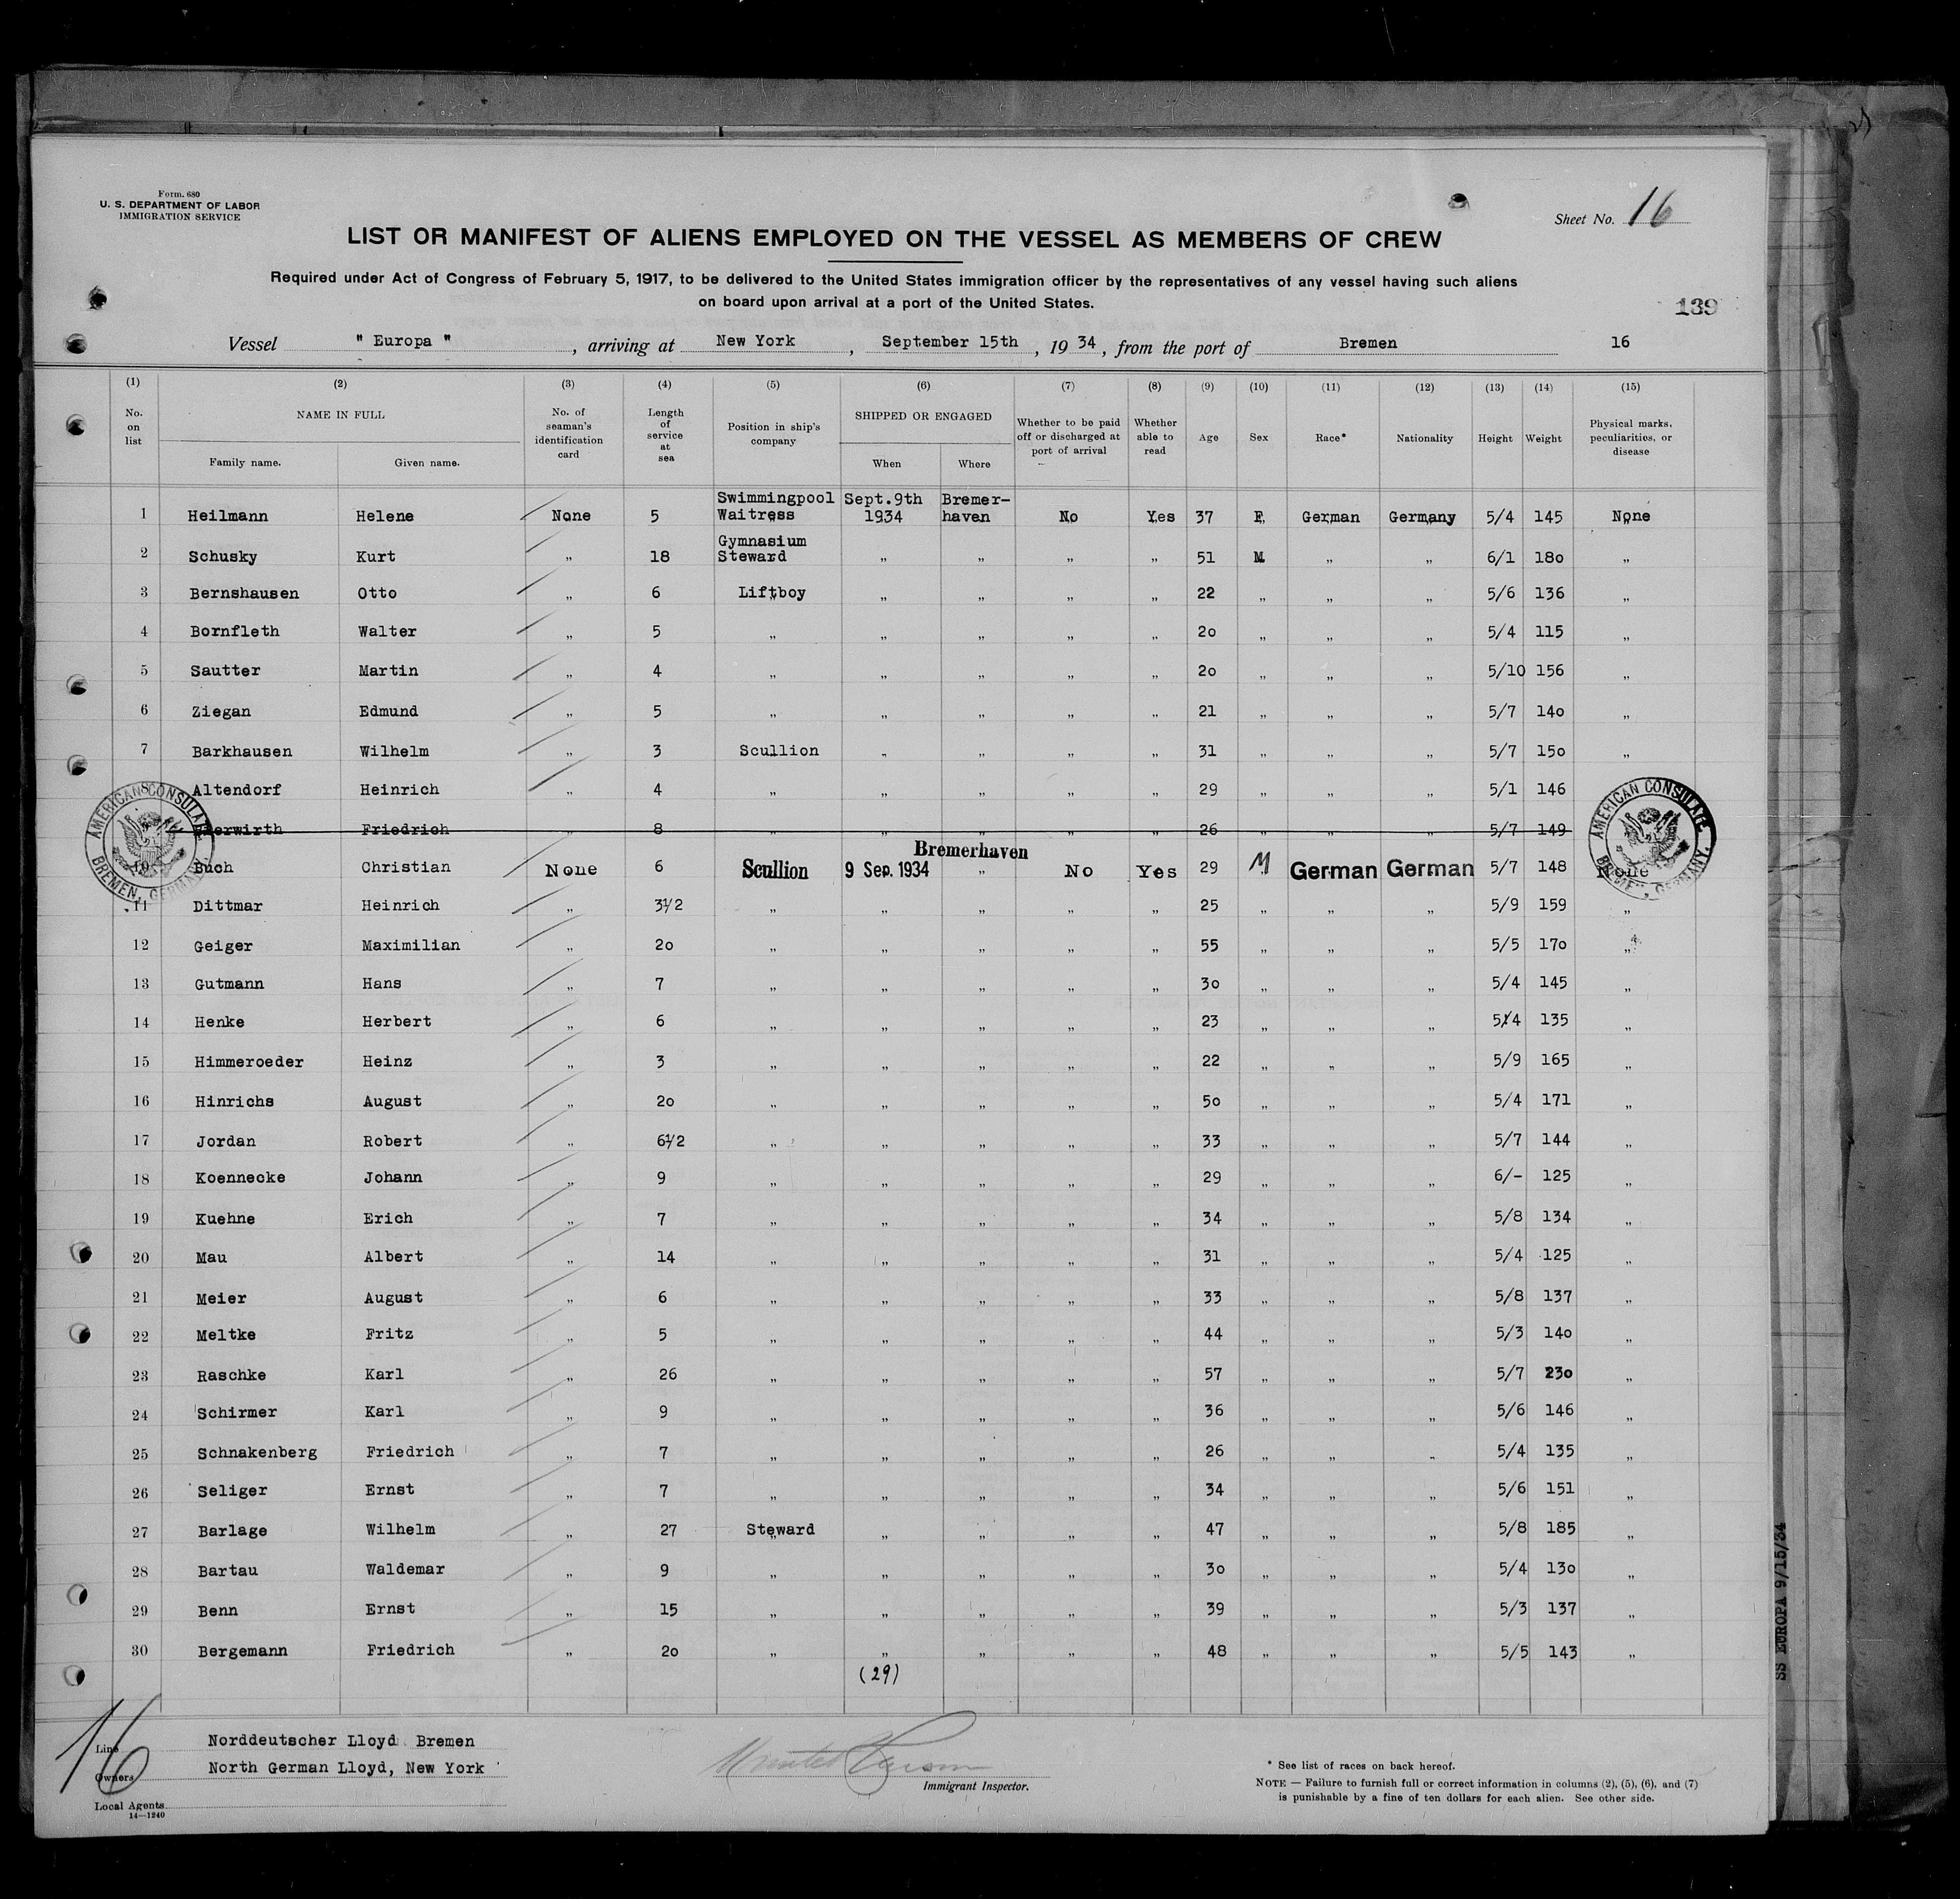 Form. 680
U. S. DEPARTMENT OF LABOR
IMMIGRATION SERVICE
Sheet No. 16
LIST OR MANIFEST OF ALIENS EMPLOYED ON THE VESSEL AS MEMBERS OF CREW
Required under Act of Congress of February 5, 1917, to be delivered to the United States immigration officer by the representatives of any vessel having such aliens
on board upon arrival at a port of the United States.
139
Vessel " Europa " , arriving at New York , September 15th , 19 34 , from the port of Bremen 16
(1) (2) (3) (4) (5) (6) (7) (8) (9) (10) (11) (12) (13) (14) (15)
No. on list NAME IN FULL Family name. Given name. No. of seaman's identification card Length of service at sea Position in ship's company SHIPPED OR ENGAGED When Where Whether to be paid off or discharged at port of arrival Whether able to read Age Sex Race* Nationality Height Weight Physical marks, peculiarities, or disease
1 Heilmann Helene None 5 Swimmingpool Waitress Sept.9th 1934 Bremer-haven No Yes 37 F German Germany 5/4 145 None
2 Schusky Kurt „ 18 Gymnasium Steward „ „ „ „ 51 M „ „ 6/1 180 „
3 Bernshausen Otto „ 6 Liftboy „ „ „ „ 22 „ „ „ 5/6 136 „
4 Bornfleth Walter „ 5 „ „ „ „ „ 20 „ „ „ 5/4 115 „
5 Sautter Martin „ 4 „ „ „ „ „ 20 „ „ „ 5/10 156 „
6 Ziegan Edmund „ 5 „ „ „ „ „ 21 „ „ „ 5/7 140 „
7 Barkhausen Wilhelm „ 3 Scullion „ „ „ „ 31 „ „ „ 5/7 150 „
8 Altendorf Heinrich „ 4 „ „ „ „ „ 29 „ „ „ 5/1 146 „
Friedrich „ 8 „ „ „ „ „ 26 „ „ „ 5/7 149
10 Buch Christian None 6 Scullion 9 Sep. 1934 Bremerhaven „ No Yes 29 M German German 5/7 148 None
11 Dittmar Heinrich „ 3½ „ „ „ „ „ 25 „ „ „ 5/9 159 „
12 Geiger Maximilian „ 20 „ „ „ „ „ 55 „ „ „ 5/5 170 „
13 Gutmann Hans „ 7 „ „ „ „ „ 30 „ „ „ 5/4 145 „
14 Henke Herbert „ 6 „ „ „ „ „ 23 „ „ „ 5/4 135 „
15 Himmeroeder Heinz „ 3 „ „ „ „ „ 22 „ „ „ 5/9 165 „
16 Hinrichs August „ 20 „ „ „ „ „ 50 „ „ „ 5/4 171 „
17 Jordan Robert „ 6½ „ „ „ „ „ 33 „ „ „ 5/7 144 „
18 Koennecke Johann „ 9 „ „ „ „ „ 29 „ „ „ 6/- 125 „
19 Kuehne Erich „ 7 „ „ „ „ „ 34 „ „ „ 5/8 134 „
20 Mau Albert „ 14 „ „ „ „ „ 31 „ „ „ 5/4 125 „
21 Meier August „ 6 „ „ „ „ „ 33 „ „ „ 5/8 137 „
22 Meltke Fritz „ 5 „ „ „ „ „ 44 „ „ „ 5/3 140 „
23 Raschke Karl „ 26 „ „ „ „ „ 57 „ „ „ 5/7 230 „
24 Schirmer Karl „ 9 „ „ „ „ „ 36 „ „ „ 5/6 146 „
25 Schnakenberg Friedrich „ 7 „ „ „ „ „ 26 „ „ „ 5/4 135 „
26 Seliger Ernst „ 7 „ „ „ „ „ 34 „ „ „ 5/6 151 „
27 Barlage Wilhelm „ 27 Steward „ „ „ „ 47 „ „ „ 5/8 185 „
28 Bartau Waldemar „ 9 „ „ „ „ „ 30 „ „ „ 5/4 130 „
29 Benn Ernst „ 15 „ „ „ „ „ 39 „ „ „ 5/3 137 „
30 Bergemann Friedrich „ 20 „ „ „ „ „ 48 „ „ „ 5/5 143 „
(29)
AMERICAN CONSULATE
BREMEN, GERMANY.
AMERICAN CONSULATE
BREMEN, GERMANY.
16
Line Norddeutscher Lloyd Bremen
Owners North German Lloyd, New York
Local Agents
14—1240
Immigrant Inspector.
* See list of races on back hereof.
NOTE — Failure to furnish full or correct information in columns (2), (5), (6), and (7)
is punishable by a fine of ten dollars for each alien. See other side.
SS EUROPA 9/15/34